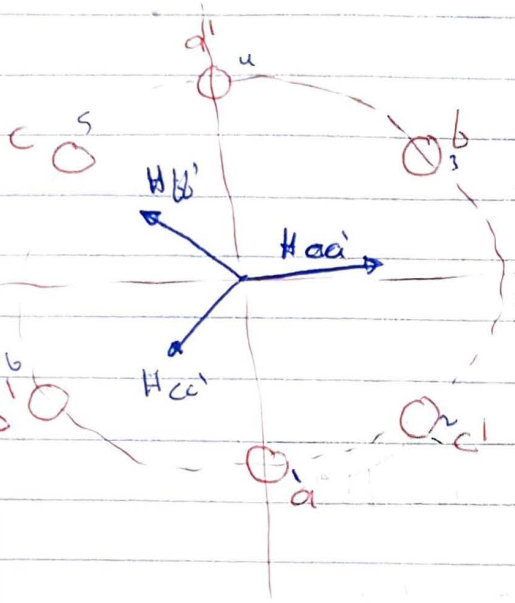 a' 4
c 5
b 3
Hbb'
Haa'
Hcc'
6
2 c'
1 a